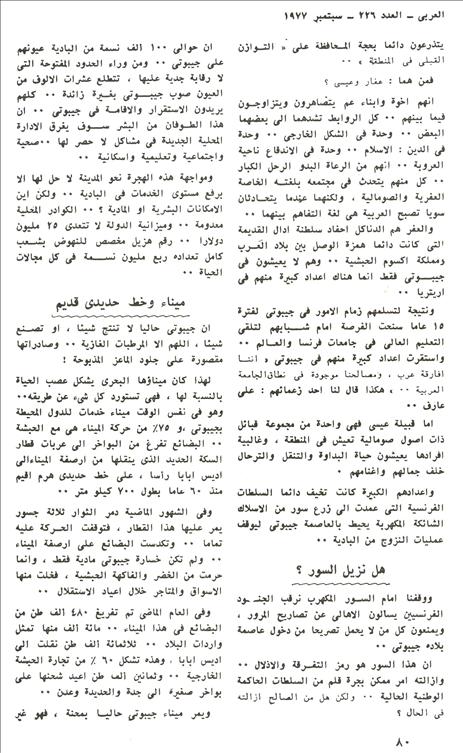 العربى - العدد ٢٢٦ - سبتمبر ١٩٧٧
يتذرعون دائما بحجة المحافظة على « التوازن
القبلى فى المنطقة » ٠٠
فمن هما : عفار وعيسى ؟
انهم اخوة وابناء عم يتصاهرون ويتزاوجون
فيما بينهم ٠٠ كل الروابط تشدهما الى بعضهما
البعض ٠٠ وحدة فى الشكل الخارجى ٠٠ وحدة
فى الدين : الاسلام ٠٠ وحدة فى الاندفاع ناحية
العروبة ٠٠ انهم من الرعاة البدو الرحل الكبار
٠٠ كل منهم يتحدث فى مجتمعه بلغته الخاصة
العفرية والصومالية ، ولكنهما عندما يتحادثان
سويا تصبح العربية هى لغة التفاهم بينهما ٠٠
والعفر هم الدناكل احفاد سلطنة ادال القديمة
التى كانت دائما همزة الوصل بين بلاد العرب
ومملكة اكسوم الحبشية ٠٠ وهم لا يعيشون فى
جيبوتى فقط انما هناك اعداد كبيرة منهم فى
اريتريا ٠٠
ونتيجة لتسلمهم زمام الامور فى جيبوتى لفترة
١٥ عاما سنحت الفرصة امام شبابهم لتلقى
التعليم العالى فى جامعات فرنسا والعالم ٠٠
واستقرت اعداد كبيرة منهم فى جيبوتى « اننا
افارقة عرب ، ومصالحنا موجودة فى نطاق الجامعة
العربية ٠٠ » هكذا قال لنا احد زعمائهم : على
عارف ٠٠
اما قبيلة عيسى فهى واحدة من مجموعة قبائل
ذات اصول صومالية تعيش فى المنطقة ، وغالبية
افرادها يعيشون حياة البداوة والتنقل والترحال
خلف جمالهم واغنامهم ٠
واعدادهم الكبيرة كانت تخيف دائما السلطات
الفرنسية التى عمدت الى زرع سور من الاسلاك
الشائكة المكهربة يحيط بالعاصمة جيبوتى ليوقف
عمليات النزوح من البادية ٠٠
هل نزيل السور ؟
ووقفنا امام السور المكهرب نرقب الجنود
الفرنسيين يسالون الاهالى عن تصاريح المرور ،
ويمنعون كل من لا يحمل تصريحا من دخول عاصمة
بلاده جيبوتى ٠٠
ان هذا السور هو رمز التفرقة والاذلال ٠٠
وازالته امر ممكن بجرة قلم من السلطات الحاكمة
الوطنية الحالية ٠٠ ولكن هل من الصالح ازالته
فى الحال ؟
ان حوالى ١٠٠ ألف نسمة من البادية عيونهم
على جيبوتى ٠٠ ومن وراء الحدود المفتوحة التى
لا رقابة جدية عليها ، تتطلع عشرات الالوف من
العيون صوب جيبوتى بغيرة زائدة ٠٠ كلهم
يريدون الاستقرار والاقامة فى جيبوتى ٠٠ ان
هذا الطوفان من البشر سوف يغرق الادارة
المحلية الجديدة فى مشاكل لا حصر لها ٠٠صحية
واجتماعية وتعليمية واسكانية ٠٠
ومواجهة هذه الهجرة نحو المدينة لا حل لها الا
برفع مستوى الخدمات فى البادية ٠٠ ولكن اين
الامكانات البشرية او المادية ؟ ٠٠ الكوادر المحلية
معدومة ٠٠ وميزانية الدولة لا تتعدى ٢٥ مليون
دولارا ٠٠ رقم هزيل مخصص للنهوض بشعب
كامل تعداده ربع مليون نسمة فى كل مجالات
الحياة ٠٠
ميناء وخط حديدى قديم
ان جيبوتى حاليا لا تنتج شيئا ، او تصنع
شيئا ، اللهم الا المرطبات الغازية ٠٠ وصادراتها
مقصورة على جلود الماعز المذبوحة !
لهذا كان ميناؤها البحرى يشكل عصب الحياة
بالنسبة لها ، فهى تستورد كل شىء عن طريقه٠٠
وهو فى نفس الوقت ميناء خدمات للدول المحيطة
بجيبوتى ،و ٧٥٪ من حركة الميناء هى مع الحبشة
٠٠ البضائع تفرغ من البواخر الى عربات قطار
السكة الحديد الذى ينقلها من ارصفة الميناءالى
اديس ابابا رأسا ، على خط حديدى هرم اقيم
منذ ٦٠ عاما بطول ٧٠٠ كيلو متر ٠٠
وفى الشهور الماضية دمر الثوار ثلاثة جسور
يمر عليها هذا القطار ، فتوقفت الحركة عليه
تماما ٠٠ وتكدست البضائع على ارصفة الميناء
٠٠ ولم تكن خسارة جيبوتى مادية فقط ، وانما
حرمت من الخضر والفاكهة الحبشية ، فخلت منها
الاسواق والمتاجر خلال اعياد الاستقلال ٠٠
وفى العام الماضى تم تفريغ ٤٨٠ ألف طن من
البضائع فى هذا الميناء ٠٠ مائة ألف منها تمثل
واردات البلاد ٠٠ ثلاثمائة ألف طن نقلت الى
اديس ابابا ، وهذه تشكل ٦٠ ٪ من تجارة الحبشة
الخارجية ٠٠ وثمانين ألف طن اعيد شحنها على
بواخر صغيرة الى جدة والحديدة وعدن ٠٠
ويمر ميناء جيبوتى حاليا بمحنة ، فهو غير
٨٠